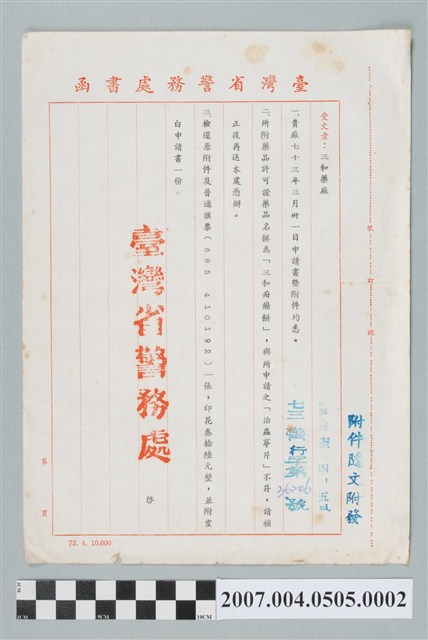 臺灣省警務處書函
受文者：三和藥廠
一、貴廠七十三年三月卅一日申請書暨附件均悉。
二、所附藥品許可證藥品名稱為「三和疳癪餅」，與所申請之「治蟲寧片」不符，請補
正後再送本處憑辦。
三、檢還原附件及普通匯票（685 410192）一張，印花叁拾陸元整，並附空
白申請書一份。
臺灣省警務處
啓
七三警行字第36206號
附件隨文附發
裝
訂
線
第
頁
72. 4. 10,000
CM
2007.004.0505.0002